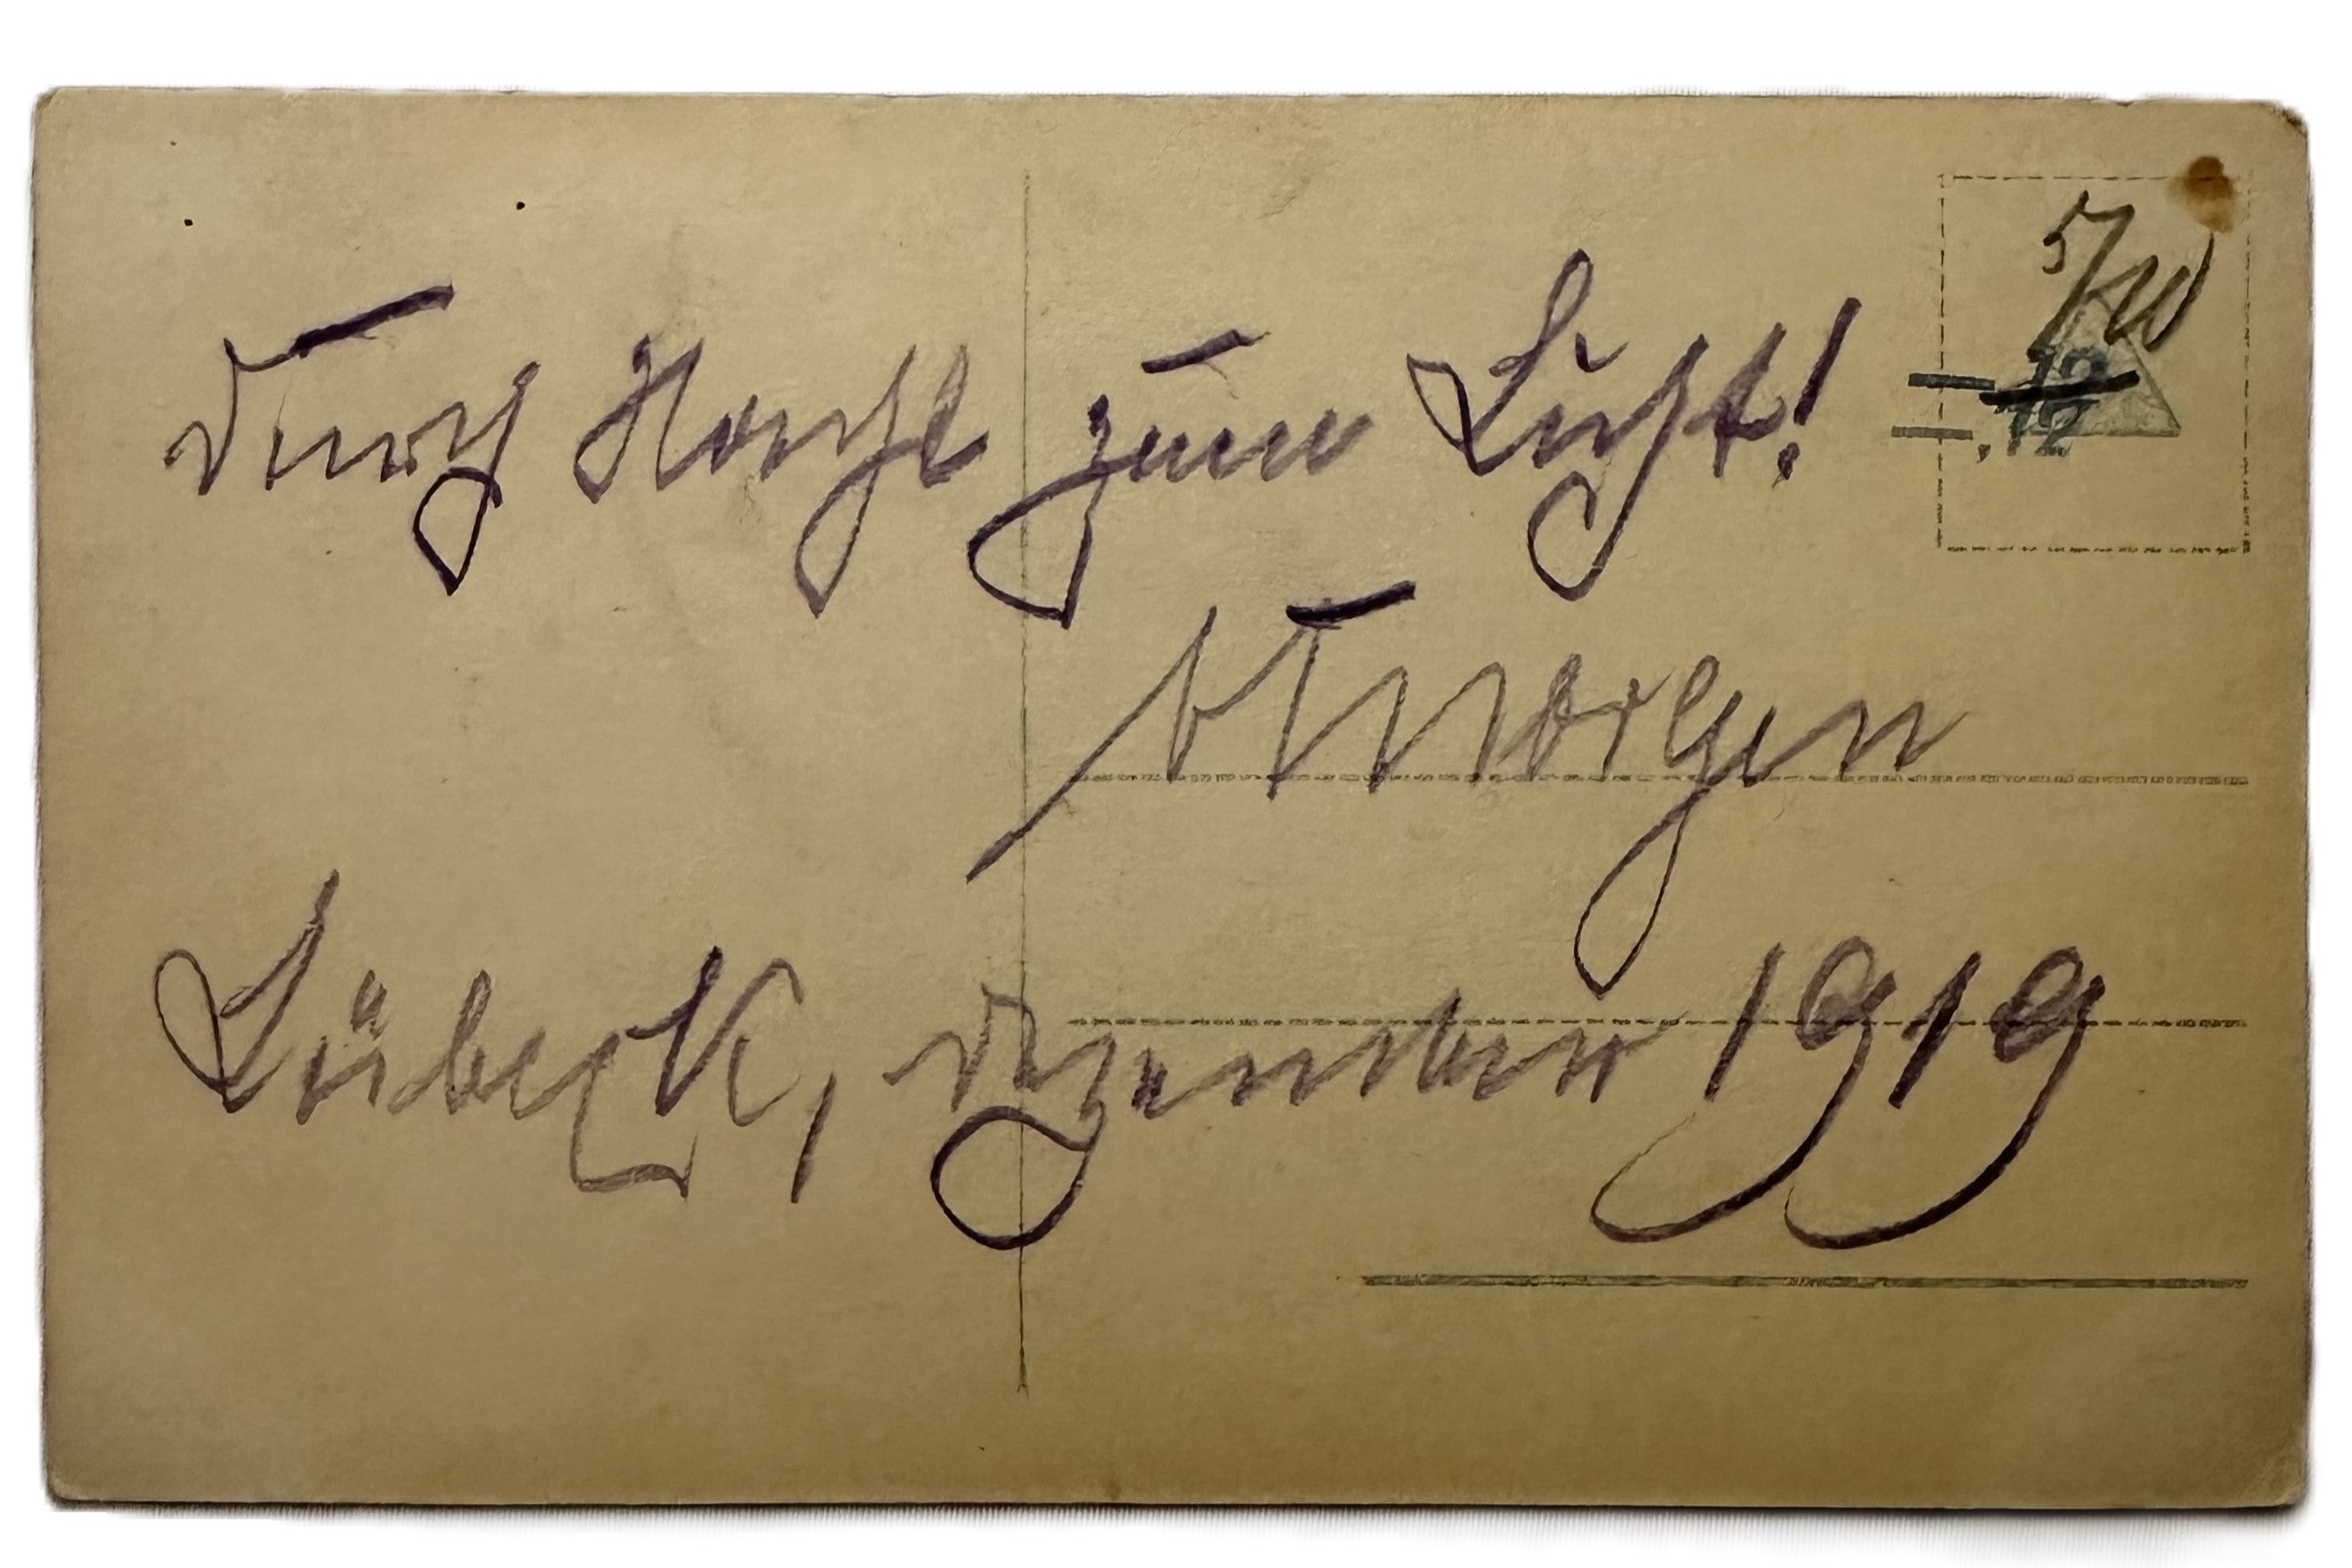 Durch Nacht zum Licht!
v Morgen
Lübeck, Dezember 1919